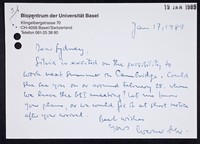 19 JAN 1989
Biozentrum der Universität Basel
Klingelbergstrasse 70
CH-4056 Basel/Switzerland
Telefon 061-25 38 80
Jan 17, 1989
Dear Sydney,
Silvia is excited on the possibility to
work next summer in Cambridge. Could
she see you on or around February 28, when
we have the meeting? Let me know
your plans, or we could fix it at short notice
after you arrived.
Best wishes
Yours